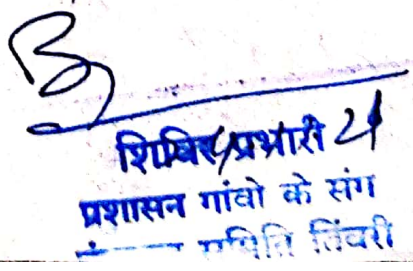 शिविर प्रभारी
प्रशासन गांवो के संग
समिति तिंवरी